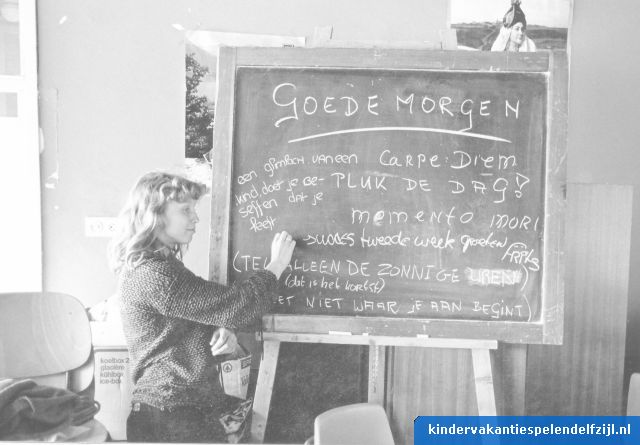 GOEDEMORGEN
een glimlach van een
kind doet je be-
seffen dat je
leeft
CARPE DIEM
PLUK DE DAG!
memento MORI
succes tweede week groeten
(TEL ALLEEN DE ZONNIGE UREN)
(dat is het kortst)
NIET WAAR JE AAN BEGINT)
koelbox 2
glacière
kühlbox
ice-box
kindervakantiespelendelfzijl.nl